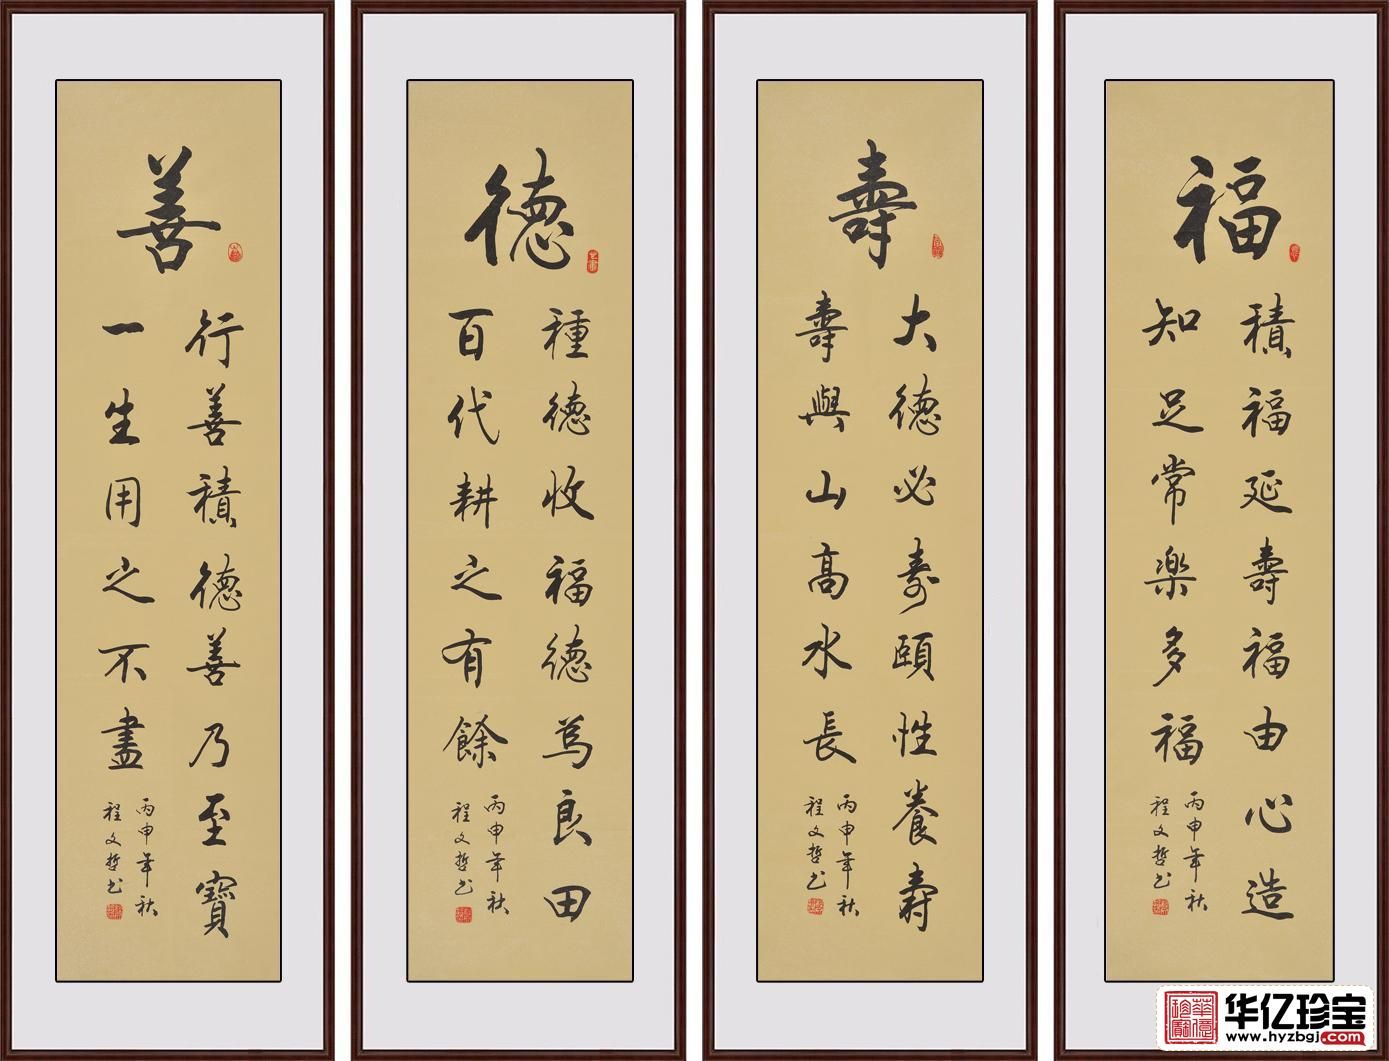 福
積福延壽福由心造
知足常樂多福
丙申年秋
程文哲书
壽
大德必寿頤性養壽
壽與山高水長
丙申年秋
程文哲书
德
種德收福德為良田
百代耕之有餘
丙申年秋
程文哲书
善
行善積德善乃至寶
一生用之不盡
丙申年秋
程文哲书
华亿珍宝
www.hyzbgj.com